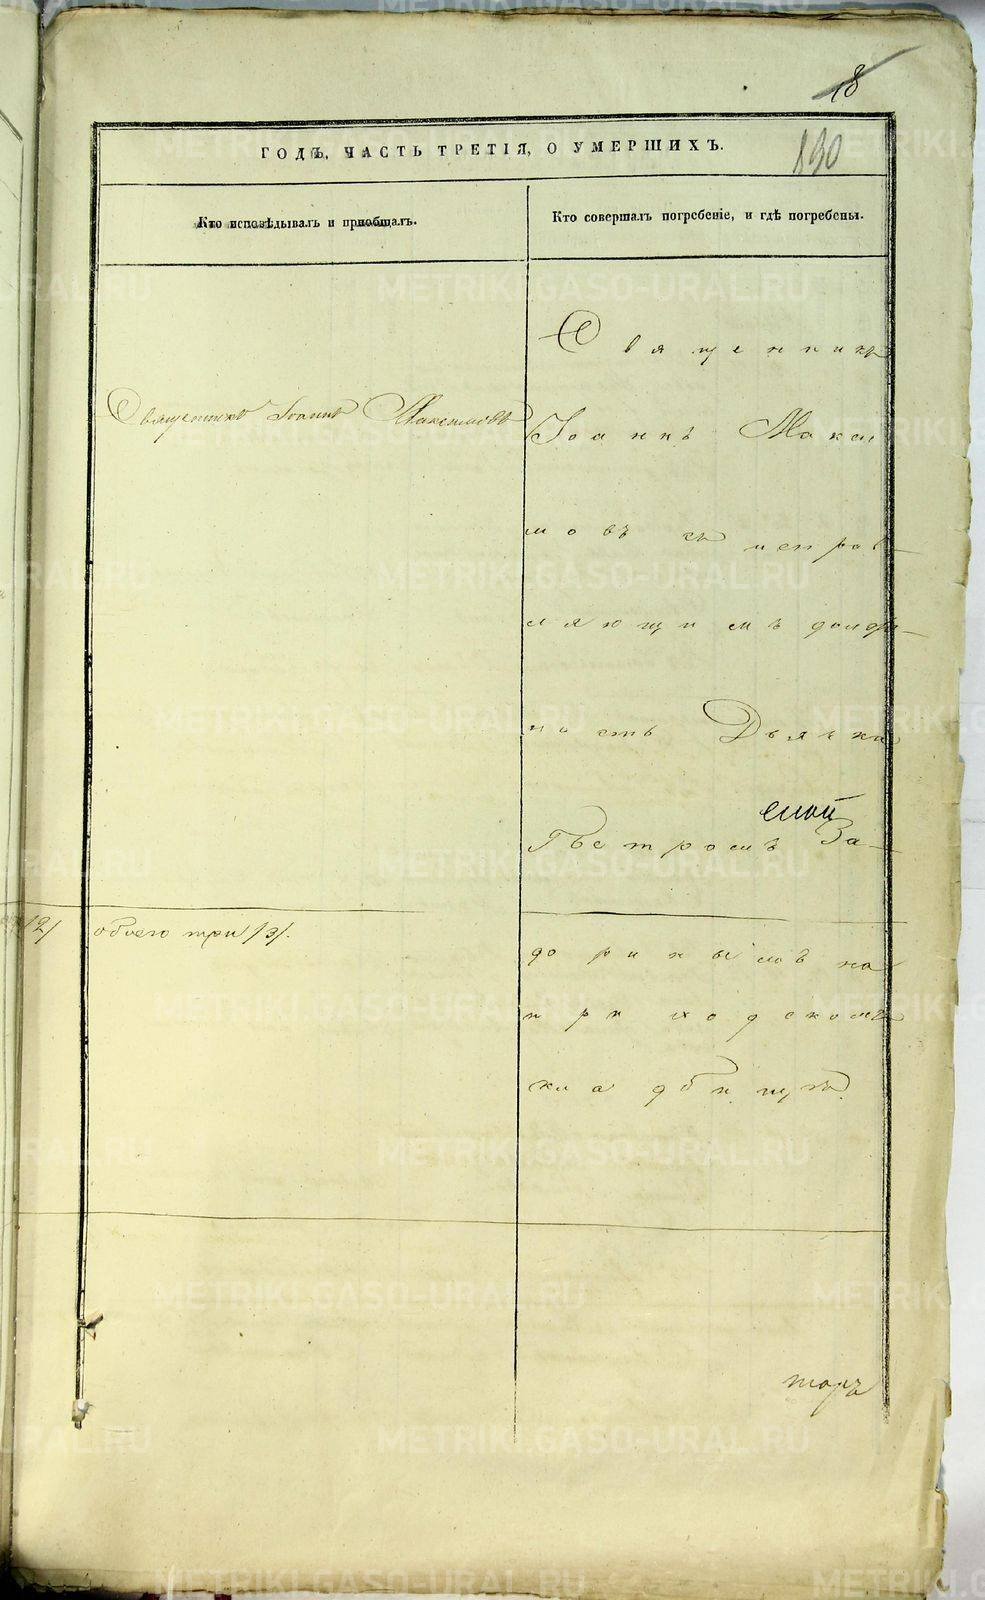 18
190
ГОДЪ, ЧАСТЬ ТРЕТІЯ, О УМЕРШИХЪ.
Кто исповѣдывалъ и пріобщалъ.
Кто совершалъ погребеніе, и гдѣ погребены.
Священникъ Іоаннъ Максимовъ
Священникъ
Іоаннъ Макси
мовъ съ исправ
ляющимъ долж
ность Дьячка
Петромъ За
2/ обоего три /3/.
до ри ны мъ на
приходскомъ
кладбищѣ.
METRIKI.GASO-URAL.RU